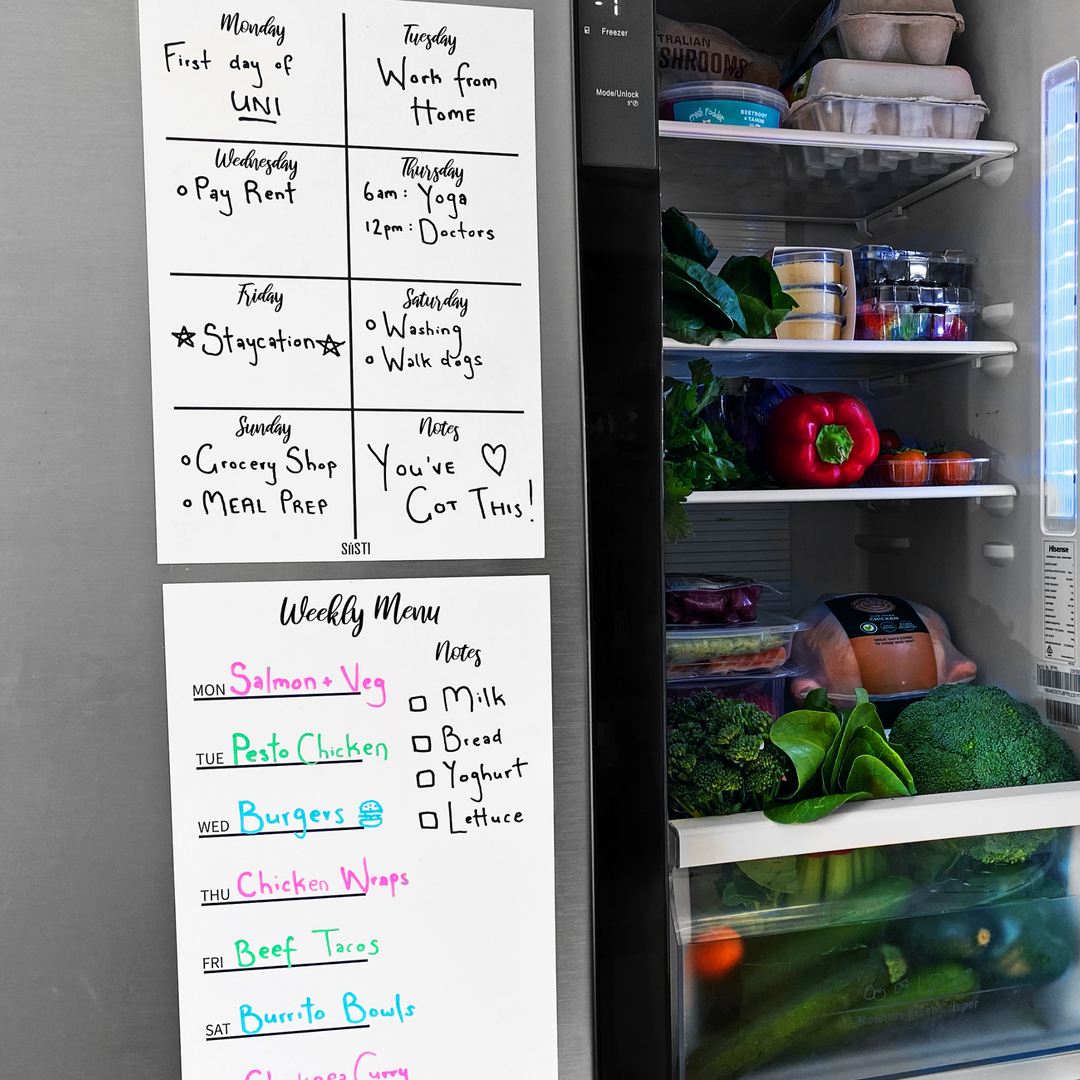 Monday
First day of
UNI
Tuesday
Work from
Home
Wednesday
Pay Rent
Thursday
6am: Yoga
12pm: Doctors
Friday
Staycation
Saturday
Washing
Walk dogs
Sunday
Grocery Shop
MEAL PREP
Notes
You've
Got This!
SiiSTI
Weekly Menu
MON Salmon + Veg
TUE Pesto Chicken
WED Burgers
THU Chicken Wraps
FRI Beef Tacos
SAT Burrito Bowls
Chickpea Curry
Notes
Milk
Bread
Yoghurt
Lettuce
Freezer
Mode/Unlock
TRALIAN
SHROOMS
Fresh Fodder
BEETROOT
+ TAHINI
CHICKEN
Hisense
Moisture Fresh Crisper